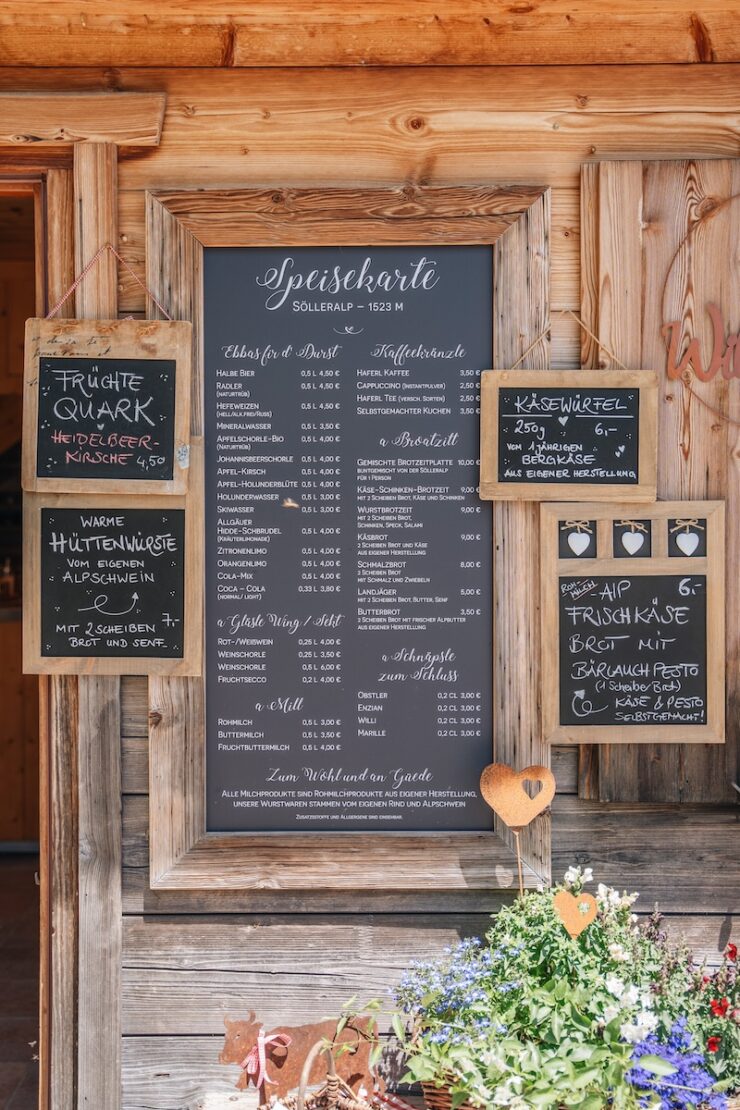 Speisekarte
SÖLLERALP – 1523 M
Ebbas fir d' Durst
HALBE BIER 0,5 L 4,50 €
RADLER 0,5 L 4,50 €
(NATURTRÜB)
HEFEWEIZEN 0,5 L 4,50 €
(HELL/ALK.FREI/RUSS)
MINERALWASSER 0,5 L 3,50 €
APFELSCHORLE-BIO 0,5 L 4,00 €
(NATURTRÜB)
JOHANNISBEERSCHORLE 0,5 L 4,00 €
APFEL-KIRSCH 0,5 L 4,00 €
APFEL-HOLUNDERBLÜTE 0,5 L 4,00 €
HOLUNDERWASSER 0,5 L 3,00 €
SKIWASSER 0,5 L 3,00 €
ALLGÄUER
HIDDE-SCHBRUDEL 0,5 L 4,00 €
(KRÄUTERLIMONADE)
ZITRONENLIMO 0,5 L 4,00 €
ORANGENLIMO 0,5 L 4,00 €
COLA-MIX 0,5 L 4,00 €
COCA – COLA 0,33 L 3,80 €
(NORMAL/ LIGHT)
a Gläsle Wing / Sekt
ROT-/WEIßWEIN 0,25 L 4,00 €
WEINSCHORLE 0,25 L 3,50 €
WEINSCHORLE 0,5 L 6,00 €
FRUCHTSECCO 0,2 L 4,00 €
a Mill
ROHMILCH 0,5 L 3,00 €
BUTTERMILCH 0,5 L 3,50 €
FRUCHTBUTTERMILCH 0,5 L 4,00 €
Kaffeekränzle
HAFERL KAFFEE 3,50 €
CAPPUCCINO (INSTANTPULVER) 2,50
HAFERL TEE (VERSCH. SORTEN) 2,50
SELBSTGEMACHTER KUCHEN 3,50
a Broatzitt
GEMISCHTE BROTZEITPLATTE 10,00
BUNTGEMISCHT VON DER SÖLLERALP
FÜR 1 PERSON
KÄSE-SCHINKEN-BROTZEIT 9,00 €
MIT 2 SCHEIBEN BROT, KÄSE UND SCHINKEN
WURSTBROTZEIT 9,00 €
MIT 2 SCHEIBEN BROT,
SCHINKEN, SPECK, SALAMI
KÄSBROT 9,00 €
2 SCHEIBEN BROT UND KÄSE
AUS EIGENER HERSTELLUNG
SCHMALZBROT 8,00 €
2 SCHEIBEN BROT
MIT SCHMALZ UND ZWIEBELN
LANDJÄGER 5,00 €
2 SCHEIBEN BROT, BUTTER, SENF
BUTTERBROT 3,50 €
2 SCHEIBEN BROT MIT FRISCHER ALPBUTTER
AUS EIGENER HERSTELLUNG
a Schnäpsle
zum Schluss
OBSTLER 0,2 CL 3,00 €
ENZIAN 0,2 CL 3,00 €
WILLI 0,2 CL 3,00 €
MARILLE 0,2 CL 3,00 €
Zum Wohl und an Guede
ALLE MILCHPRODUKTE SIND ROHMILCHPRODUKTE AUS EIGENER HERSTELLUNG,
UNSERE WURSTWAREN STAMMEN VOM EIGENEN RIND UND ALPSCHWEIN
ZUSATZSTOFFE UND ALLERGENE SIND EINSEHBAR.
FRÜCHTE
QUARK
HEIDELBEER-
KIRSCHE 4,50
WARME
HÜTTENWÜRSTE
VOM EIGENEN
ALPSCHWEIN
7,-
MIT 2 SCHEIBEN
BROT UND SENF
KÄSEWÜRFEL
250g 6,-
VOM 1 JÄHRIGEN
BERGKÄSE
AUS EIGENER HERSTELLUNG
ROH-
MILCH -ALP 6,-
FRISCHKÄSE
BROT MIT
BÄRLAUCH PESTO
(1 Scheibe Brot)
KÄSE & PESTO
SELBSTGEMACHT!